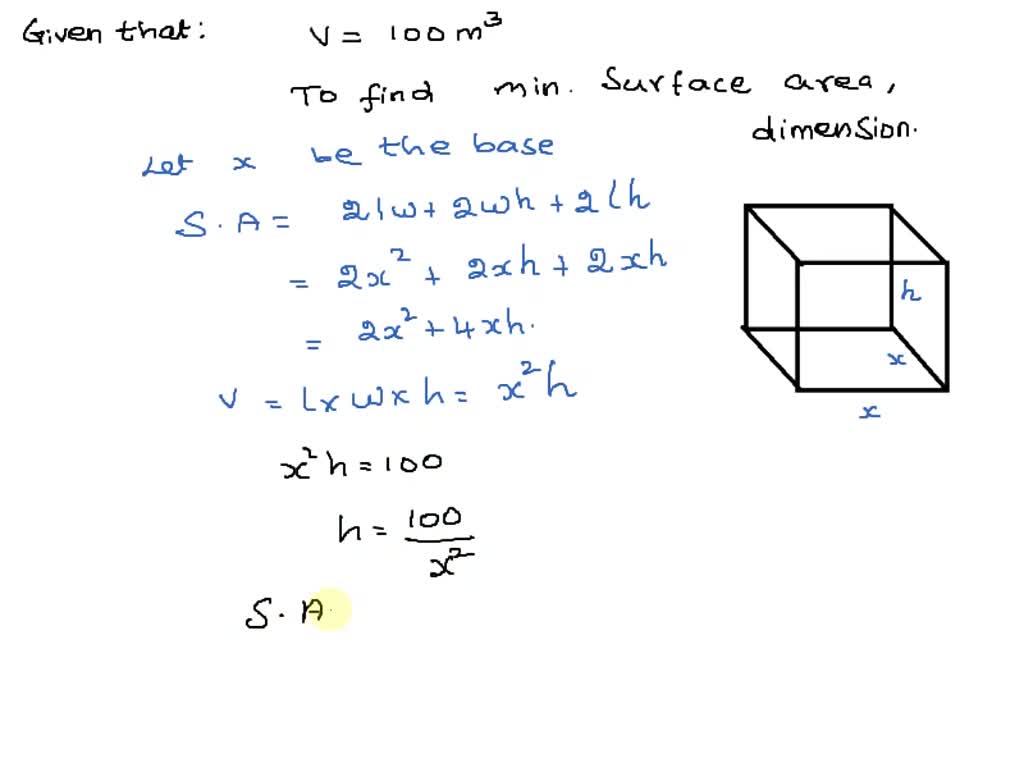 Given that: V = 100 m³
To find min. Surface area,
dimension.
Let x be the base
S.A = 2lw + 2wh + 2lh
= 2x² + 2xh + 2xh
= 2x² + 4xh.
V = L x w x h = x²h
x²h = 100
h = 100/x²
S. A
h
x
x